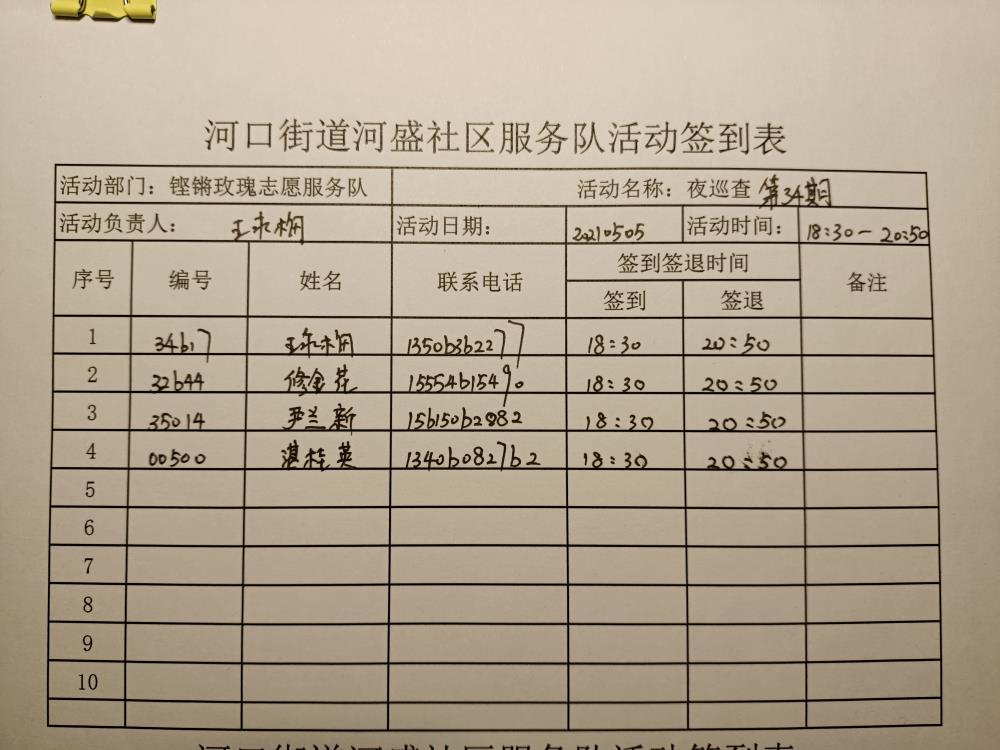 河口街道河盛社区服务队活动签到表
活动部门：铿锵玫瑰志愿服务队 活动名称：夜巡查 第34期
活动负责人： 王永梅 活动日期： 20210505 活动时间： 18:30-20:50
序号 编号 姓名 联系电话 签到签退时间 备注
签到 签退
1 34617 王永梅 13503622777 18:30 20:50
2 32644 修金花 15554615490 18:30 20:50
3 35014 尹兰新 15615062082 18:30 20:50
4 00500 湛桂英 13406082762 18:30 20:50
5
6
7
8
9
10
河口街道河盛社区服务队活动签到表